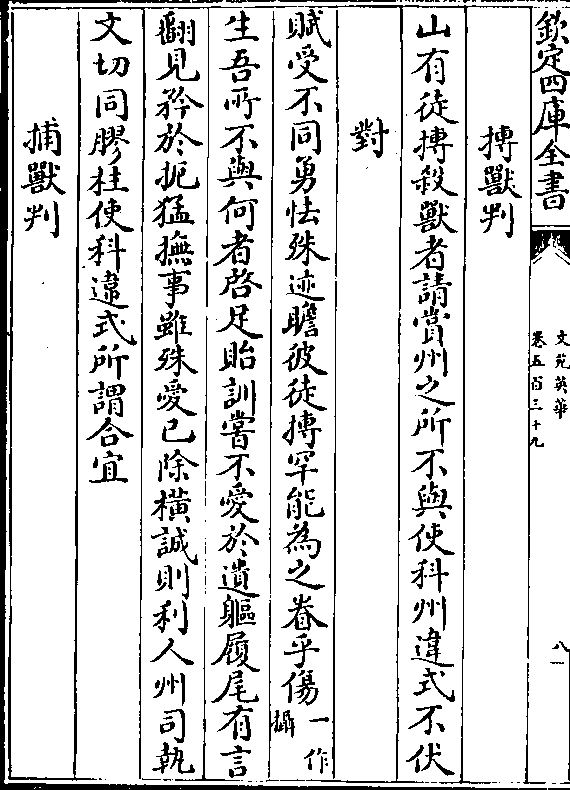 欽定四庫全書
文苑英華
卷五百三十九
八
搏獸判
山有徒搏殺獸者請賞州之所不與使科州違式不伏
對
賦受不同勇怯殊迹瞻彼徒搏罕能為之眷乎傷一作攝
生吾所不與何者啓足貽訓嘗不愛於遺軀履尾有言
翻見矜於扼猛撫事雖殊愛已除橫誠則利人州司執
文切同膠柱使科違式所謂合宜
捕獸判